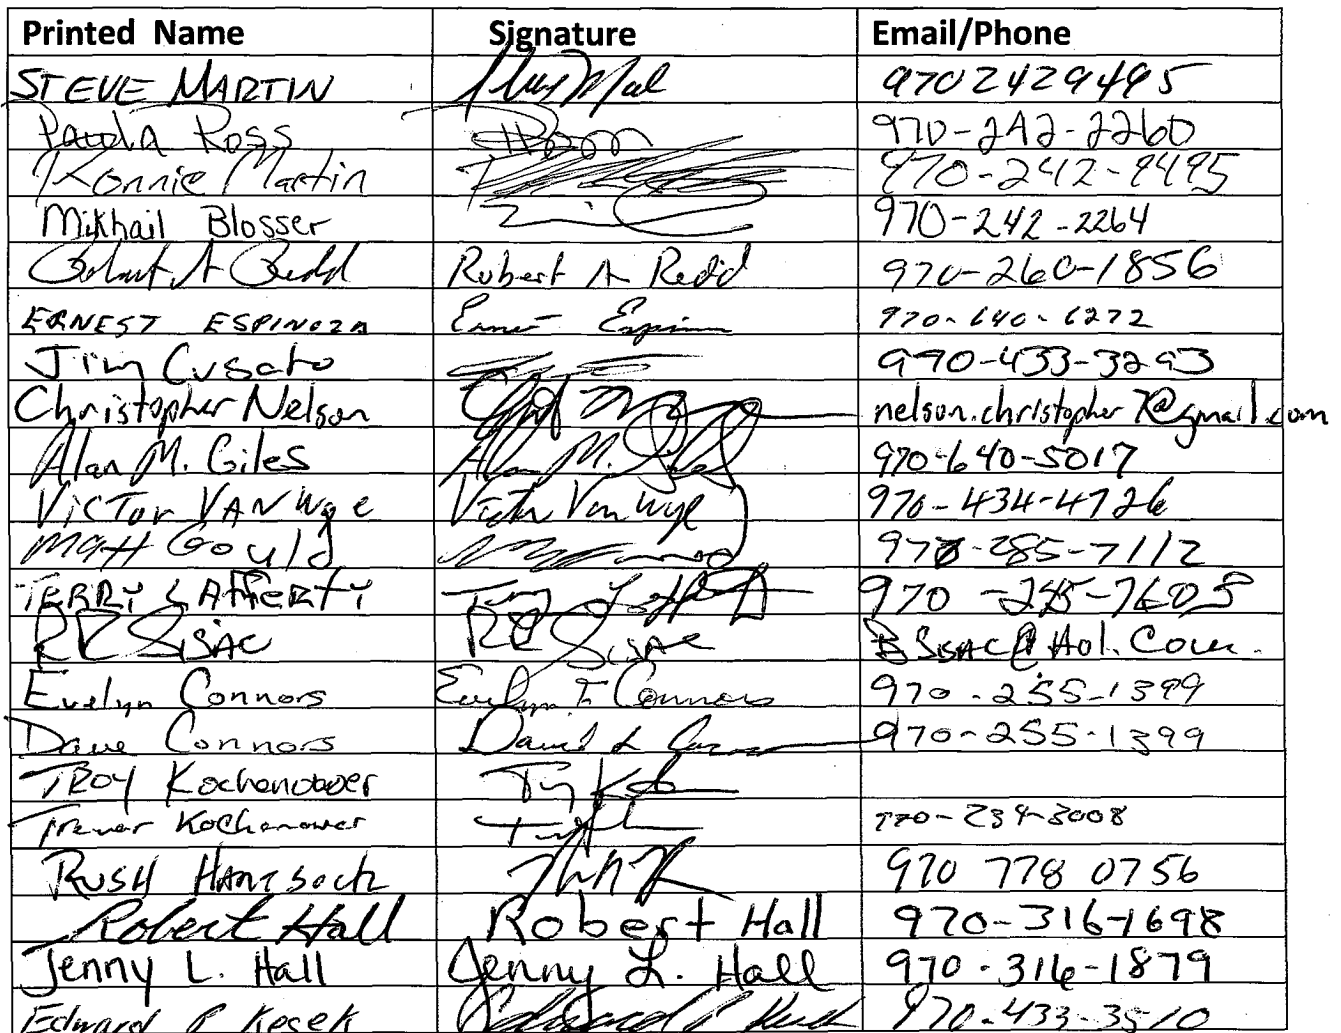 Printed Name Signature Email/Phone
STEVE MARTIN 9702429495
Paula Ross 970-242-2260
Konnie Martin 970-242-9495
Mikhail Blosser 970-242-2264
Robert A Redd Robert A Redd 970-260-1856
ERNEST ESPINOZA Ernest Espinoza 970-640-6272
Jim Cusato 970-433-3293
Christopher Nelson nelson.christopher7@gmail.com
Alan M. Giles Alan M. Giles 970-640-5017
VICTOR VANWYE Victor VanWye 970-434-4726
Matt Gould 970-285-7112
TERRY LAFFERTY Terry 970
SISAC SISAC
Evelyn Connors Evelyn F Connors 970-255-1399
Dave Connors David L Connors 970-255-1399
TROY Kochenower
Trevor Kochenower 970-234-3008
RUSH HANTSOCH 970 778 0756
Robert Hall Robert Hall 970-316-1698
Jenny L. Hall Jenny L. Hall 970-316-1879
Edward P Kesek 970-433-3510